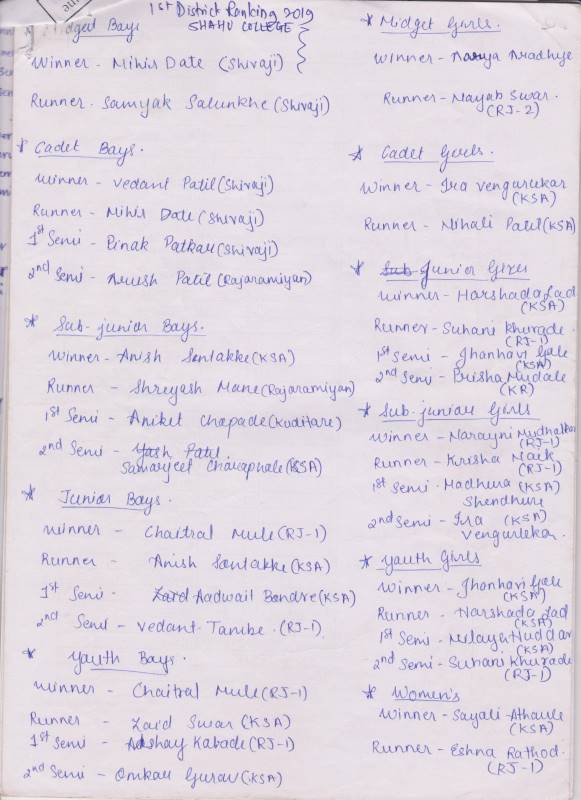 1st District Ranking 2019
SHAHU COLLEGE
Midget Boys
Winner - Mihir Date (Shivaji)
Runner - Samyak Salunkhe (Shivaji)
* Cadet Boys.
Winner - Vedant Patil (Shivaji)
Runner - Mihir Date (Shivaji)
1st Semi - Pinak Patkar (Shivaji)
2nd Semi - Patil (Rajaramiyan)
* Sub-junior Boys.
Winner - Anish Sontakke (KSA)
Runner - Shreyash Mane (Rajaramiyan)
1st Semi - Aniket Chapade (Kuditare)
2nd Semi - Yash Patil
Samarjeet (KSA)
* Junior Boys.
Winner - Chaitral Mule (RJ-1)
Runner - Anish Sontakke (KSA)
1st Semi - Zaid Aadwait Bondre (KSA)
2nd Semi - Vedant Tambe. (RJ-1)
* Youth Boys.
Winner - Chaitral Mule (RJ-1)
Runner - Zaid Swar (KSA)
1st Semi - Akshay Kabade (RJ-1)
2nd Semi - Omkar Gurav (KSA)
* Midget Girls.
Winner -
Runner - Nayab Swar.
(RJ-2)
* Cadet Girls.
Winner - Ira Vengurlekar
(KSA)
Runner - Nihali Patil (KSA)
* Sub Junior Girls
Winner - Harshada Lad
(KSA)
Runner - Suhani Khurade
(RJ-1)
1st Semi - Jhanhavi Gole
(KSA)
2nd Semi - Prisha Mudale
(KR)
* Sub-junior Girls
Winner - Narayni Mudhalkar
(RJ-1)
Runner - Krisha Naik
(RJ-1)
1st Semi - Madhura (KSA)
Shendhure
2nd Semi - Ira (KSA)
Vengurlekar.
* Youth Girls
Winner - Jhanhavi Gole
(KSA)
Runner - Harshada Lad
(KSA)
1st Semi - Huddar
(KSA)
2nd Semi - Suhani Khurade
(RJ-1)
* Women's
Winner - Sayali Athaule
(KSA)
Runner - Eshna Rathod.
(RJ-1)